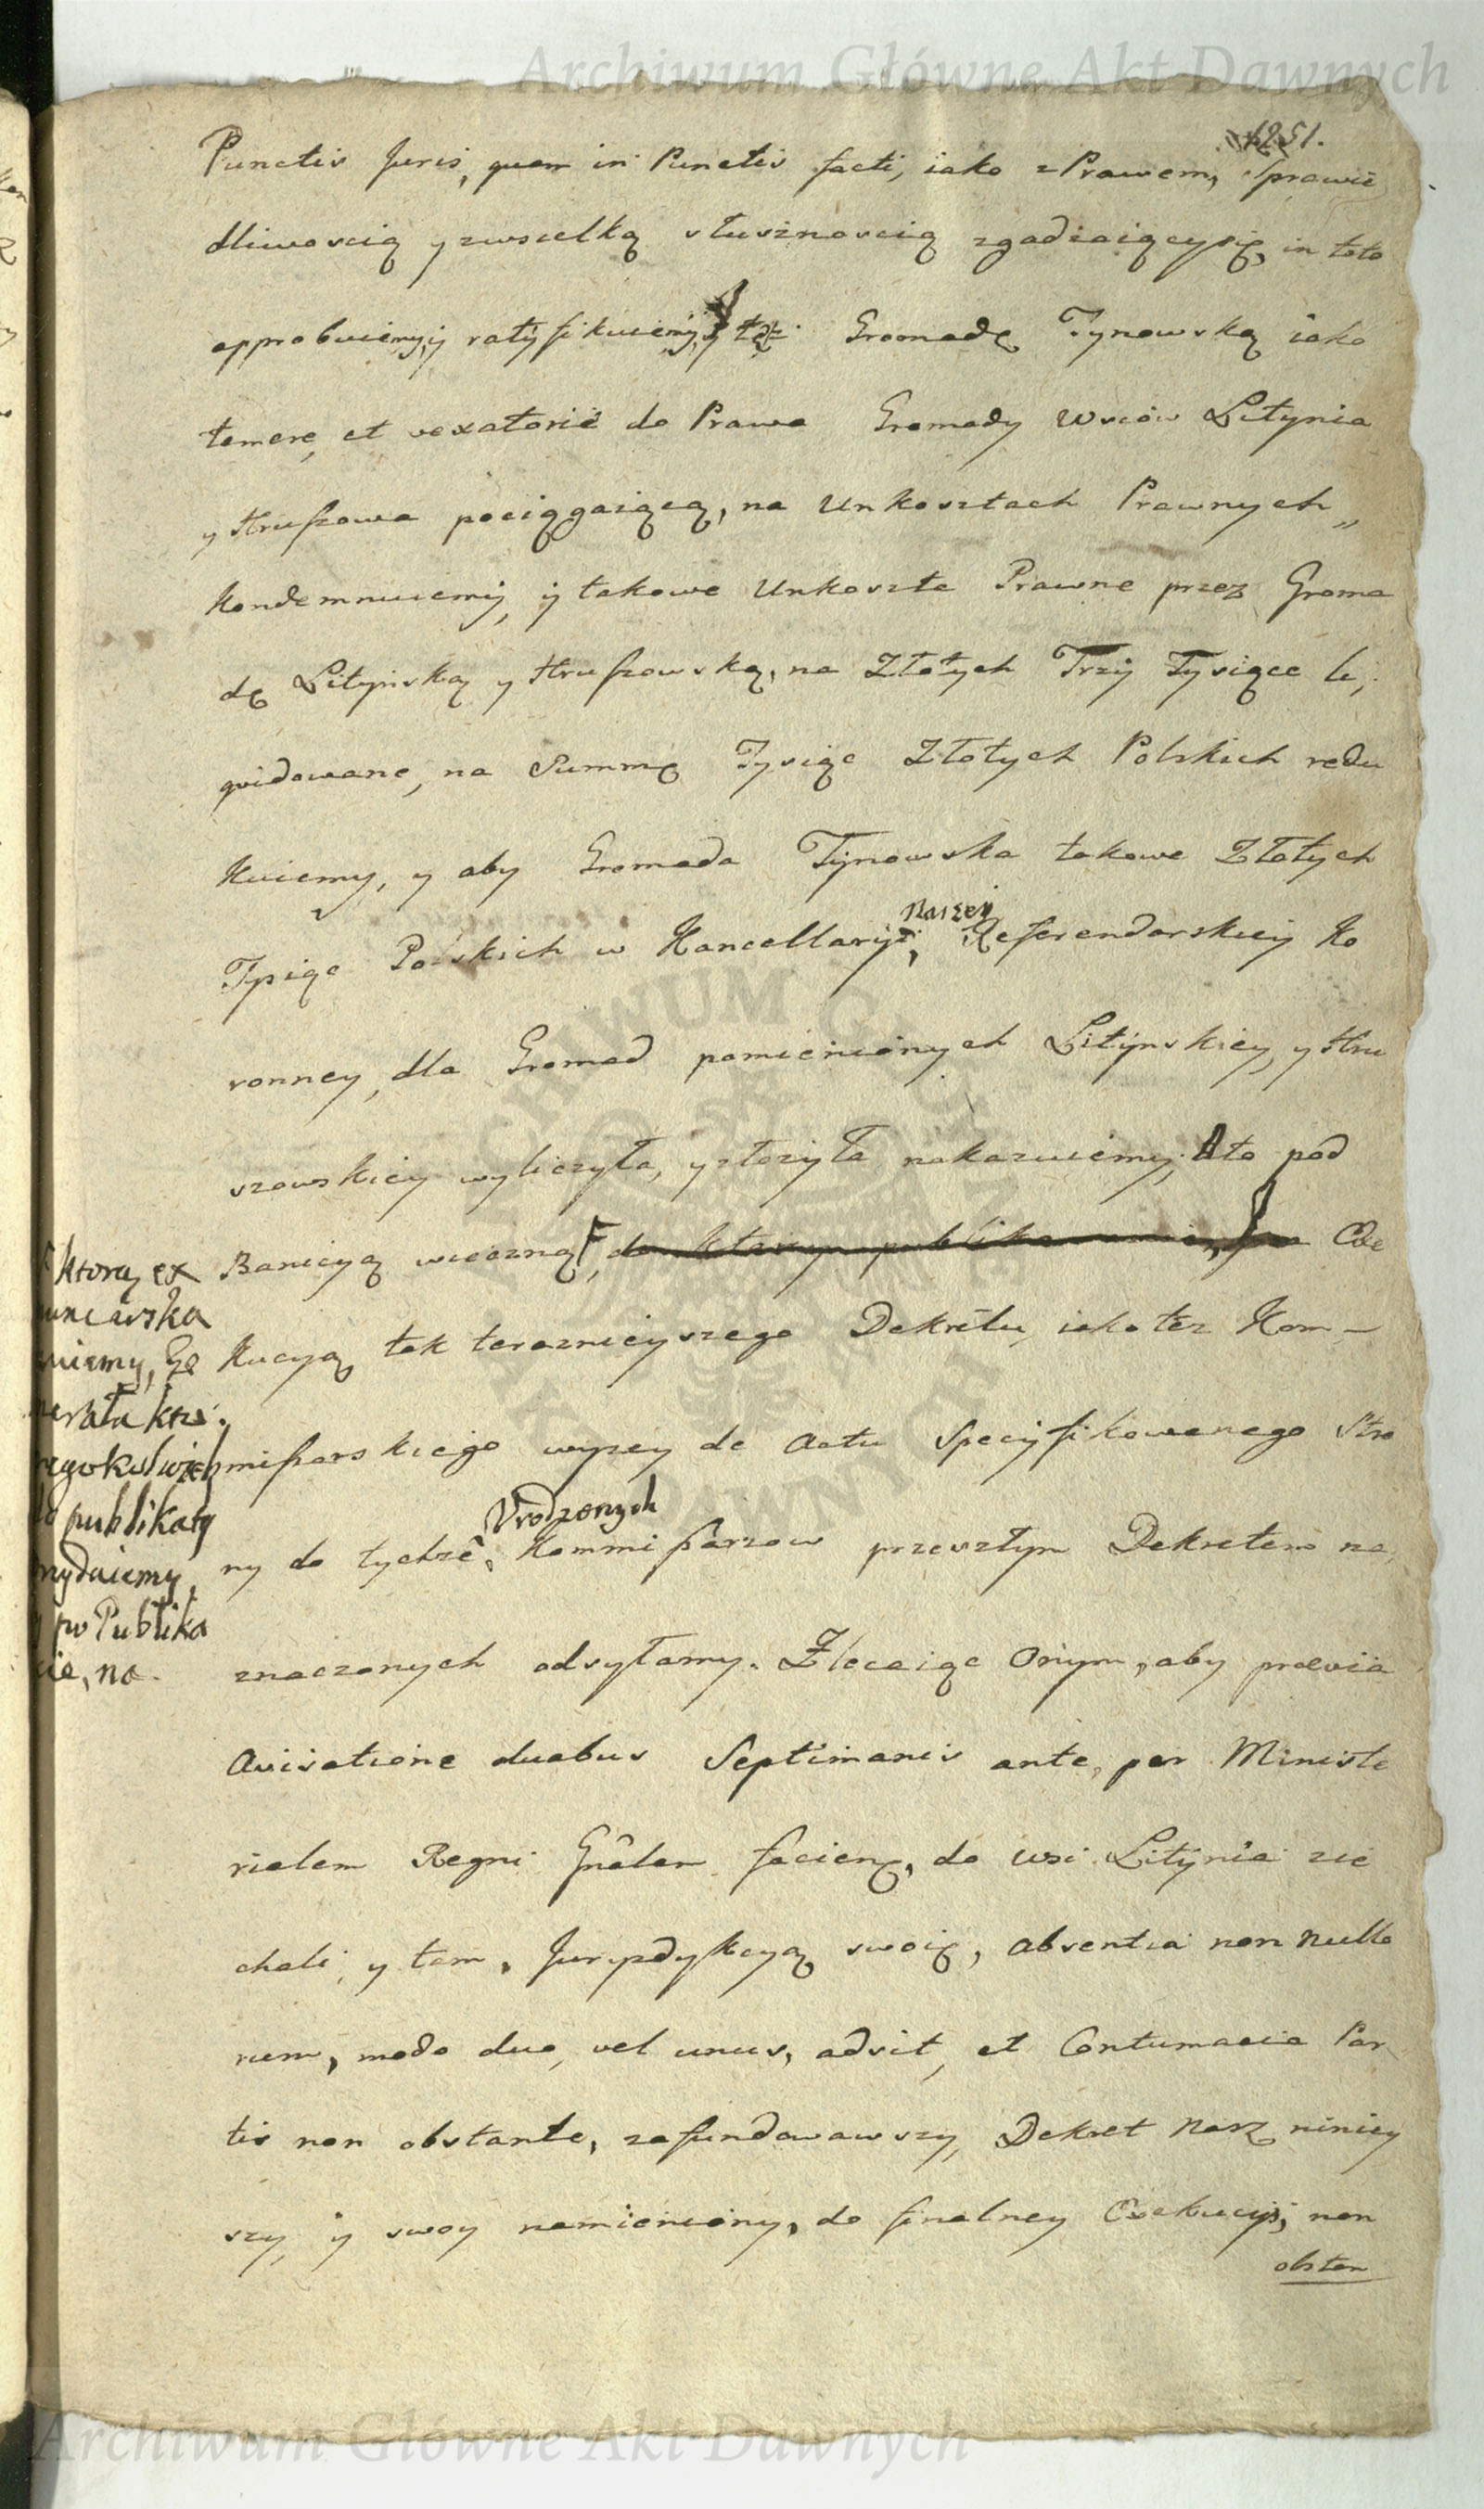 Archiwum Główne Akt Dawnych
1251.
Punctis Juris, quam in Punctis facti, iako z Prawem, Sprawie
dliwoscią y zwszelką słusznoscią zgadzaiącysię, in toto
approbuiemy, y ratyfikuiemy, y tęż Gromadę Tynowską iako
temere, et vexatorie do Prawa Gromady Wsiów Litynia
y Hruszowa pociągaiącą, na Unkosztach Prawnych„
kondemnuiemy, y takowe Unkoszta Prawne przez Groma
dę Lityńską y Hruszowską, na Złotych Trzy Tysiące li,
qvidowane, na Summę Tysiąc Złotych Polskich redu
kuiemy, y aby Gromada Tynowska takowe Złotych
Naszey
Tysiąc Polskich w Kancellaryi, Referendarskiey Ko
ronney, dla Gromad pomienionych Lityńskiey, y Hru
szowskiey wyliczyła, y złożyła nakazuiemy, A to pod
Banicyą wieczną, do ktorey publikowania, Exe
ktorey ex
kucyą tak teraznieyszego Dekretu, iako też Kom-
missarskiego wyzey de Actu Specyfikowanego Stro
publikaty
Urodzonych
ny do tychże, Kommissarzow przeszłym Dekretem na,
wydaiemy,
po Publika
znaczonych odsyłamy. Zlecaiąc Onym, aby prævia
cie, na.
Avisatione duabus Septimanis ante, per Ministe
rialem Regni Gñalem facienę, do wsi Litynia zie
chali, y tam, Juryzdykcyą swoię, absentia non nullo
rum, modo duo, vel unus, adsit, et Contumacia Par
tis non obstante, zafundowawszy, Dekret Nasz niniey
szy, y swoy namieniony, do finalney Exekucyi, non
obstan
Archiwum Główne Akt Dawnych